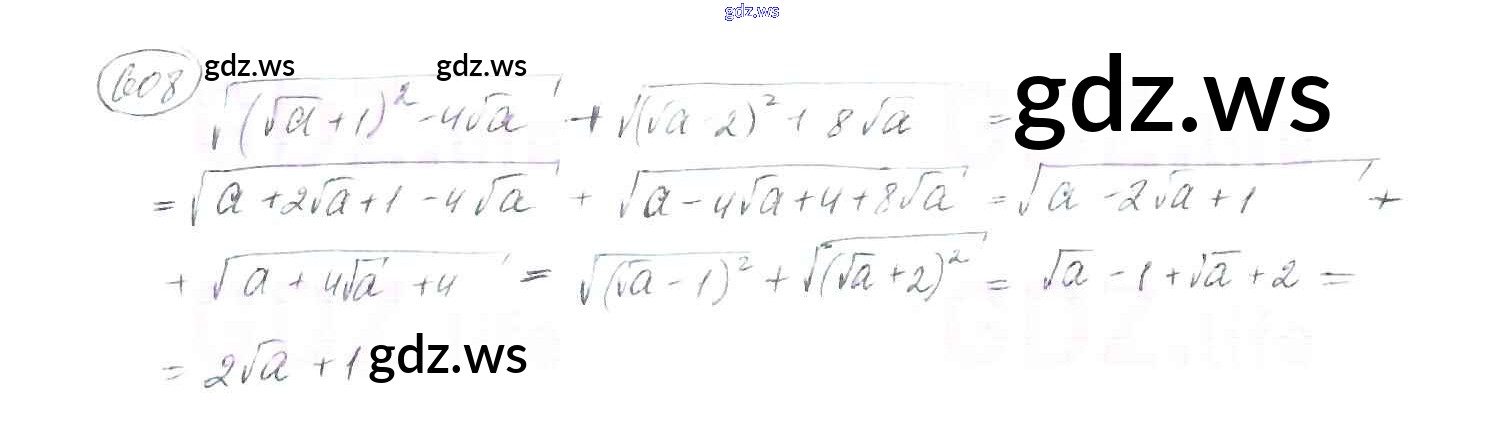 gdz.ws
608 gdz.ws gdz.ws
√((√a+1)² - 4√a) + √((√a-2)² + 8√a) = gdz.ws
= √(a + 2√a + 1 - 4√a) + √(a - 4√a + 4 + 8√a) = √(a - 2√a + 1) +
+ √(a + 4√a + 4) = √((√a - 1)²) + √((√a + 2)²) = √a - 1 + √a + 2 =
= 2√a + 1 gdz.ws